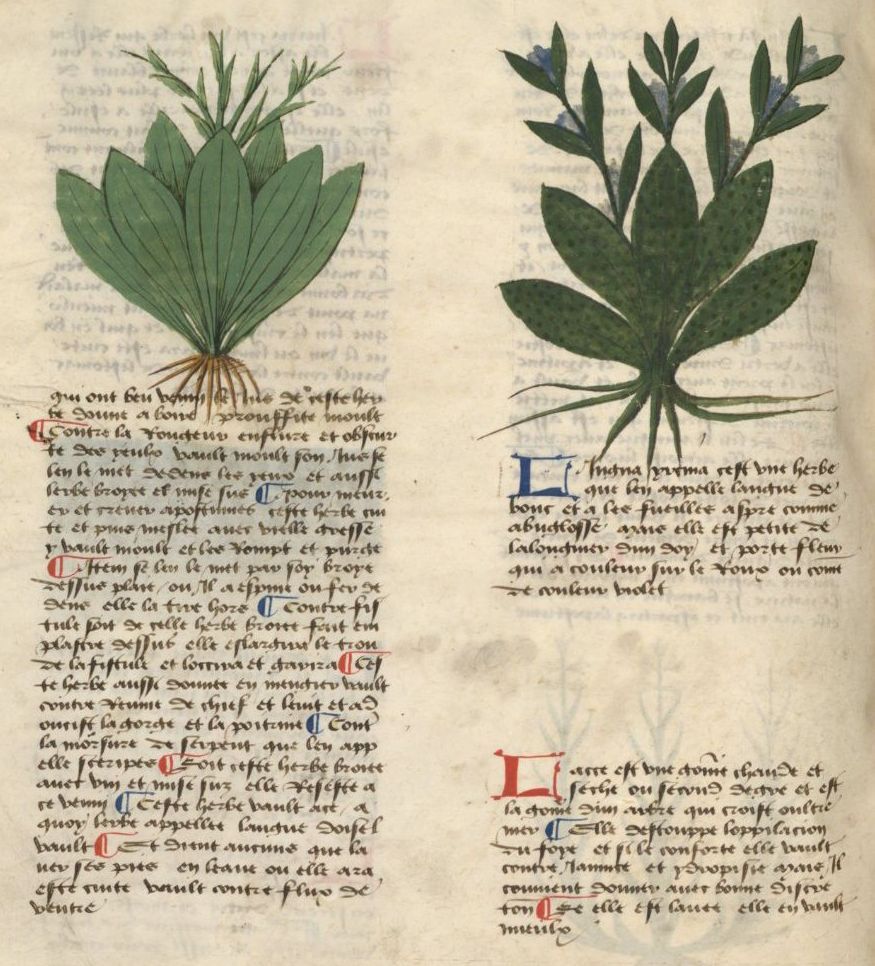 qui ont beu venin le jus de ceste her
be donne a boire prouffite moult
Contre la Rougeur enflure et obscur
te des yeulx vault moult son jus se
len le met dedens les yeux et aussi
lerbe broyee et mise sus Pour meur
er et crever apostumes ceste herbe cui
te et puis meslee avec vielle gresse
y vault moult et les Rompt et purge
Item se len le met par soy broye
dessus plaie ou Il a espine ou fer de
dens elle la tire hors Contre fis
tule soit de celle herbe broiee fait em
plastre dessus elle eslargira le trou
de la fistule et loccira et garira Ces
te herbe aussi donnee en mengier vault
contre Reume de chief et et ad
oucist la gorge et la poitrine Cont
la morsure de serpent que len app
elle Soit ceste herbe broiee
avec vin et mise sus elle Resiste a
ce venin Ceste herbe vault a ce a
quoy lerbe appellee langue doisel
vault Et dient aucuns que la
ver ses pies en leaue ou elle ara
este cuite vault contre flux de
ventre
Lingua yrcina cest une herbe
que len appelle langue de
bouc et a les fueilles aspre comme
abuglosse mais elle est petite de
la longueur dun doy et porte fleur
qui a couleur sur le Roux ou come
de couleur violet
Lacce est une gome chaude et
seche ou second degre et est
la gome dun arbre qui croist oultre
mer Elle destouppe lopilacion
du foye et si le conforte elle vault
contre Jaunice et ydropisie mais Il
convient donner avec bonne discre
tion Se elle est lavee elle en vault
mieulx